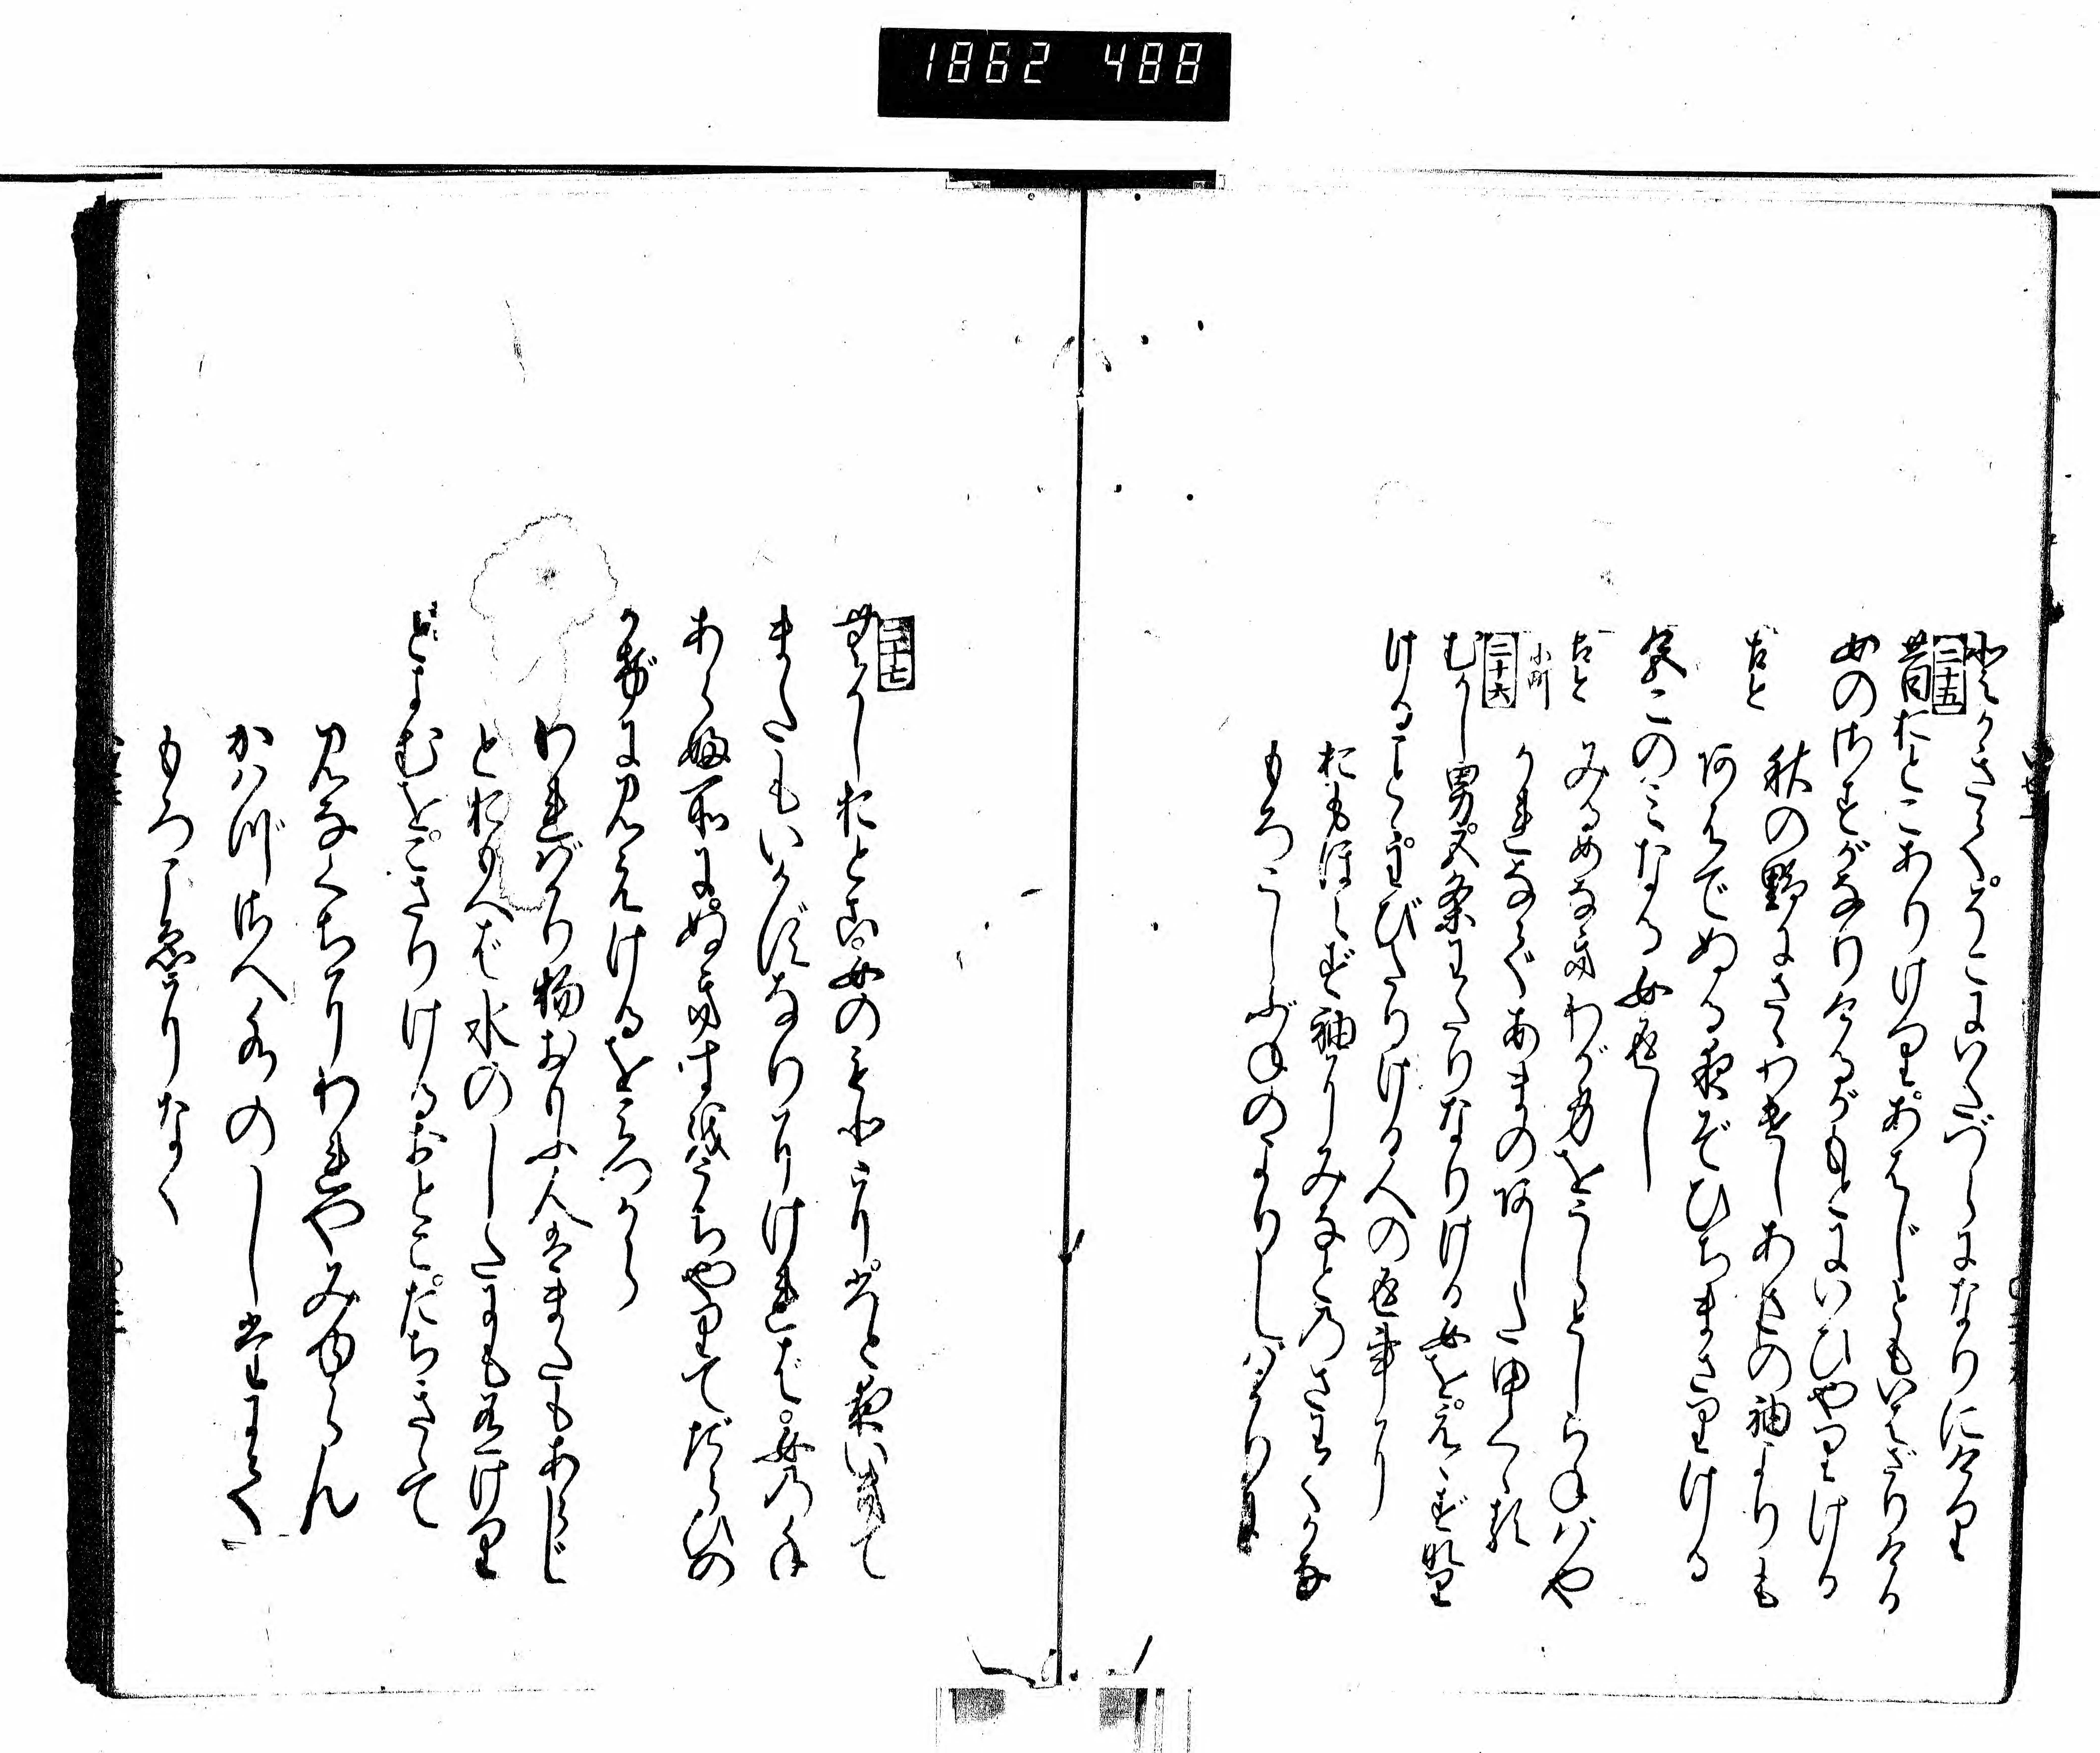 1862 488
てかきて。そこにいたづらになりにけり
二十五
昔おとこありけり。あはじともいはざりける
女のさすがなりけるがもとにいひやりける
古と
秋の野にさゝわけしあさの袖よりも
あはでぬる夜ぞひちまさりける
色このみなる女返し
古と
みるめなきわが身をうらとしらねばや
小町
かれなであまのあしたゆくくる
二十六
むかし男五条わたりなりける女を。えゝず成
けることゝわびたりける人の返事に
おもほえず袖にみなとのさわぐかな
もろこしぶねのよりしばかりに
二十七
昔おとこ女のもとに一夜いきて
またもいかずなりにければ。女の手
あらふ所に。ぬきすをうちやりてたらひの
かげに見えけるをみづから
わればかり物おもふ人は又もあらじ
とおもへば水のしたにも有けり
とよむを。こざりけるおとこ。たちきゝて
みなくちにわれやみゆらん
かはづさへ水のしたにて
もろこゑになく